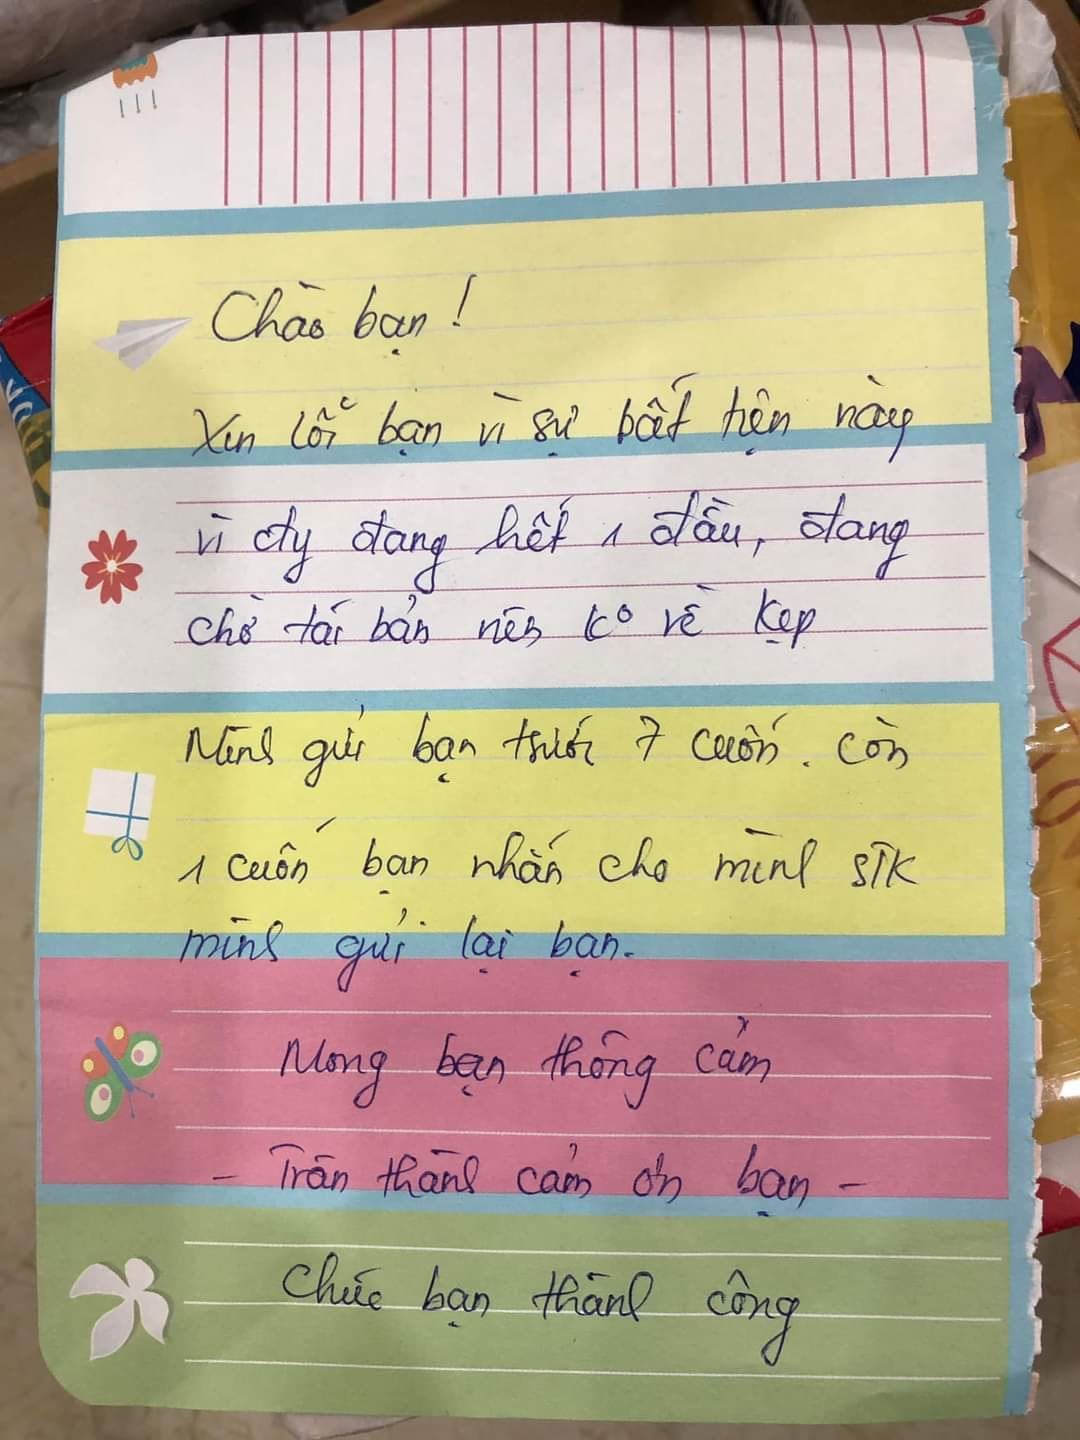 Chào bạn!
Xin lỗi bạn vì sự bất tiện này
vì cty đang hết 1 đầu, đang
chờ tái bản nên k° về kẹp
Mình gửi bạn trước 7 cuốn. Còn
1 cuốn bạn nhắn cho mình STK
mình gửi lại bạn.
Mong bạn thông cảm
- Trân thành cảm ơn bạn -
Chúc bạn thành công